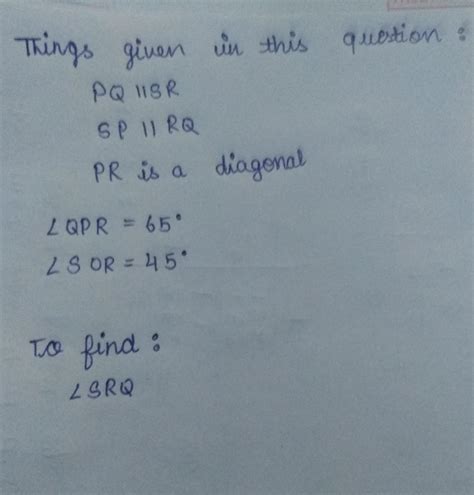 Things given in this question :
PQ || SR
SP || RQ
PR is a diagonal
∠QPR = 65°
∠SOR = 45°
To find :
∠SRQ